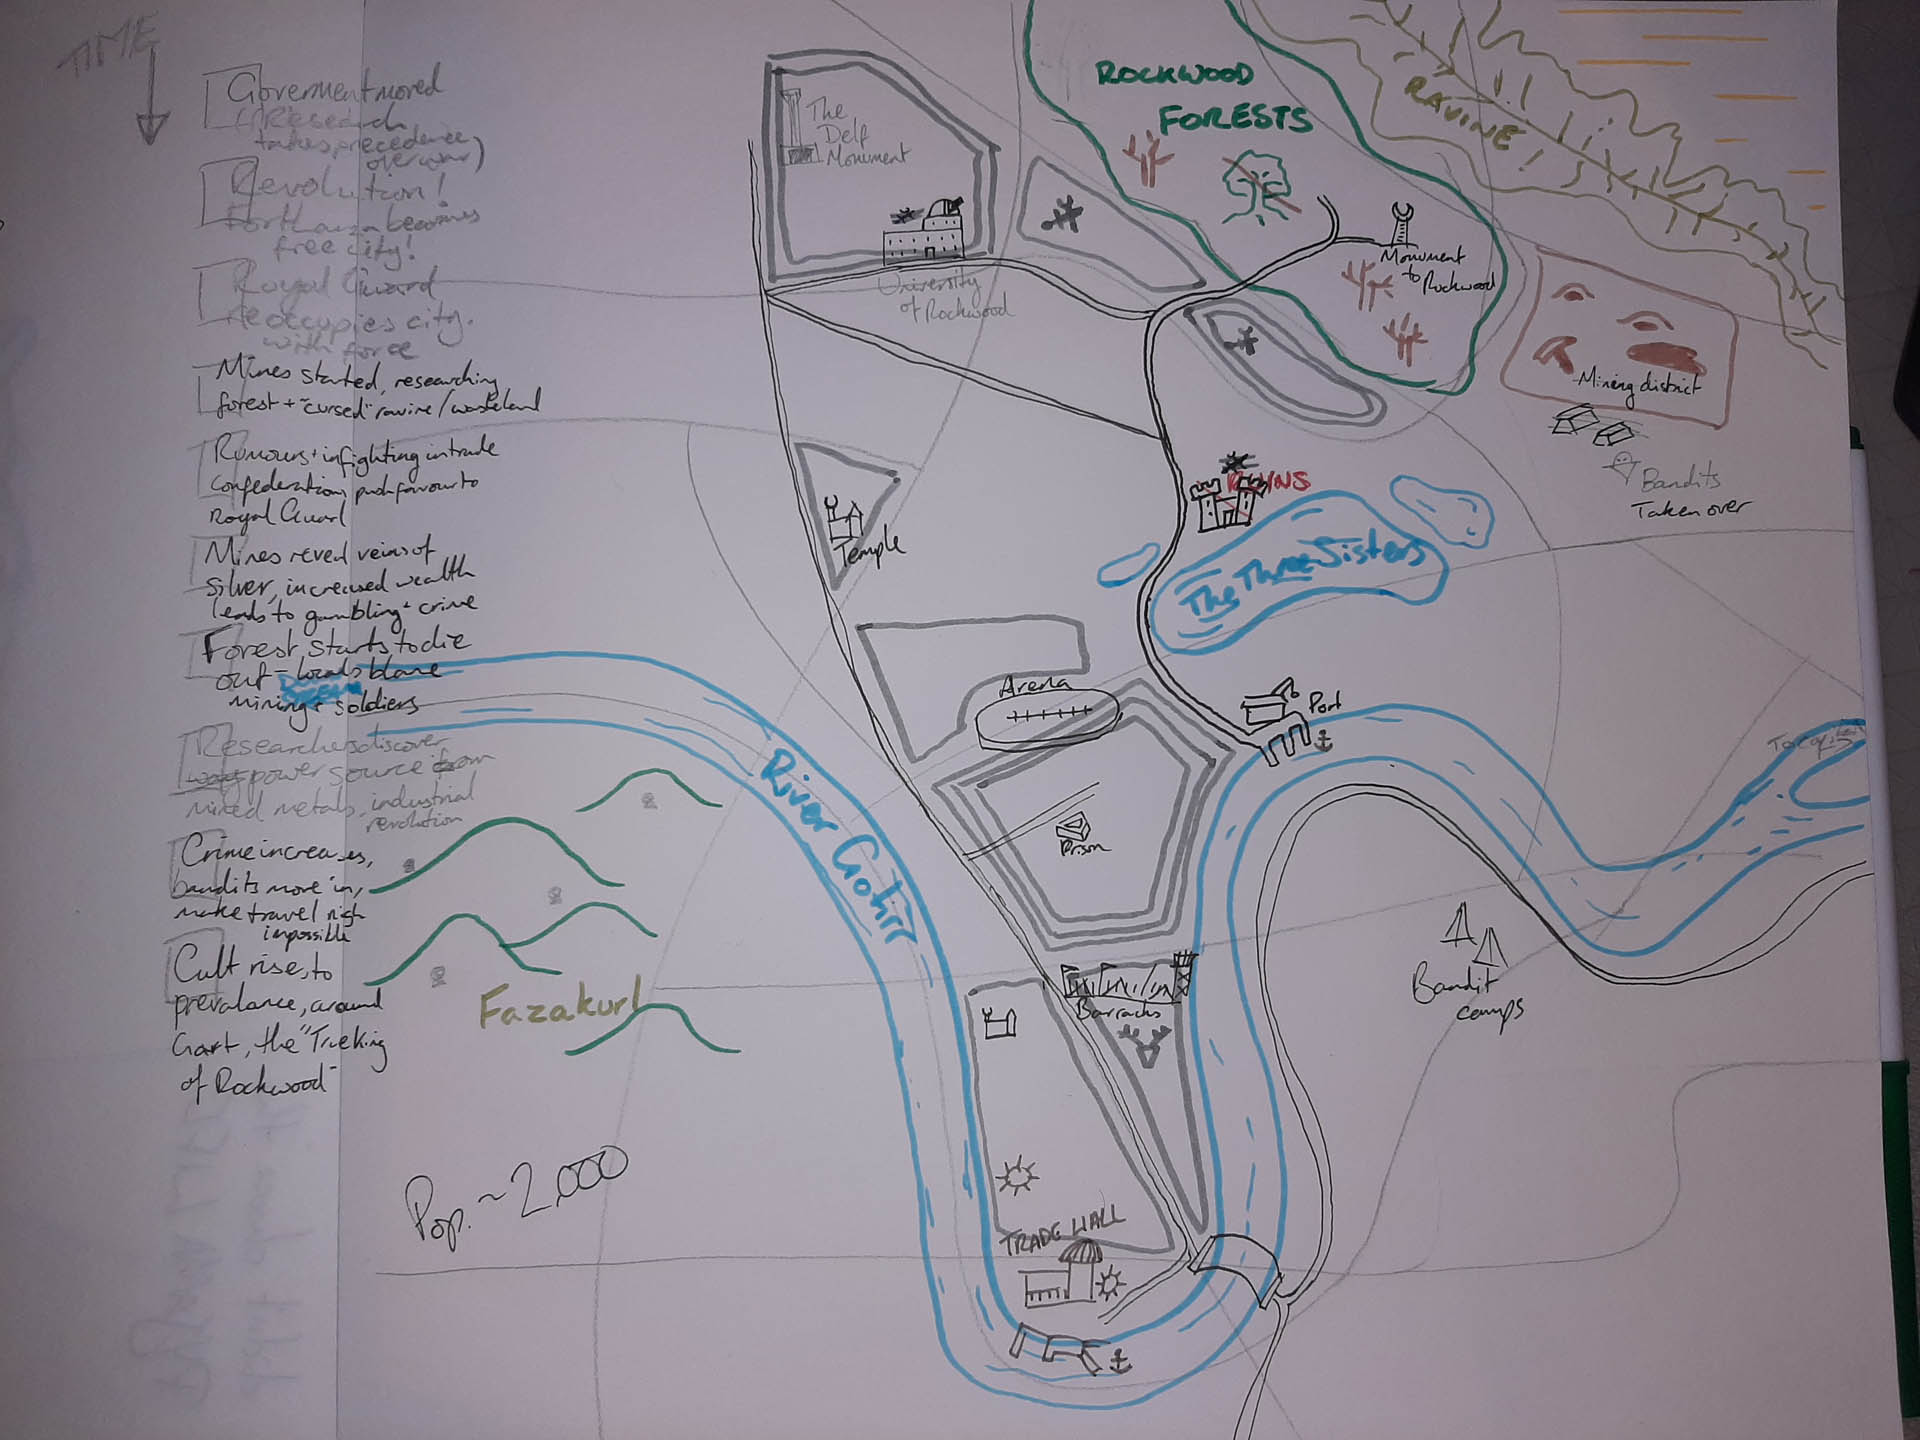 TIME
Goverment moved
(Research
takes precedence
over war)
Revolution!
becomes
free city!
Royal Guard
reoccupies city.
with force
Mines started, researching
forest + "cursed" ravine/wasteland
Rumours + infighting in trade
confederation, push favour to
Royal Guard
Mines reveal veins of
silver, increased wealth
leads to gambling + crime
Forest starts to die
out - locals blame
mining + soldiers
Researchers discover
power source from
mixed metals, industrial
revolution
Crime increases,
bandits move in,
make travel nigh
impossible
Cult rises to
prevalance, around
Gart, the "True king
of Rockwood"
Pop. ~2,000
The
Delf
Monument
University
of Rockwood
ROCKWOOD
FORESTS
RAVINE!
Monument
to Rockwood
Mining district
Bandits
Taken over
RUINS
The Three Sisters
Temple
Arena
Port
Prison
River Gohir
Fazakurl
Barracks
Bandit
camps
TRADE HALL